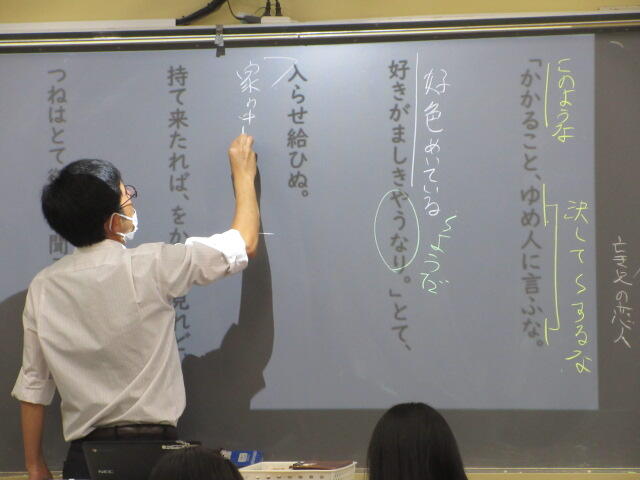 亡き父の恋人
「かかること、ゆめ人に言ふな。
このような
決して〜するな
好きがましきやうなり。」とて、
好色めいている
〜ようだ
入らせ給ひぬ。
家の中
持て来たれば、をか
見れど
つねはとて
聞
NEC